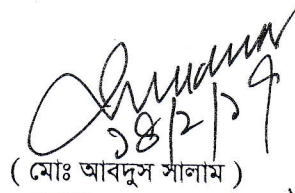 ১৪/২/১৭
( মোঃ আবদুস সালাম )